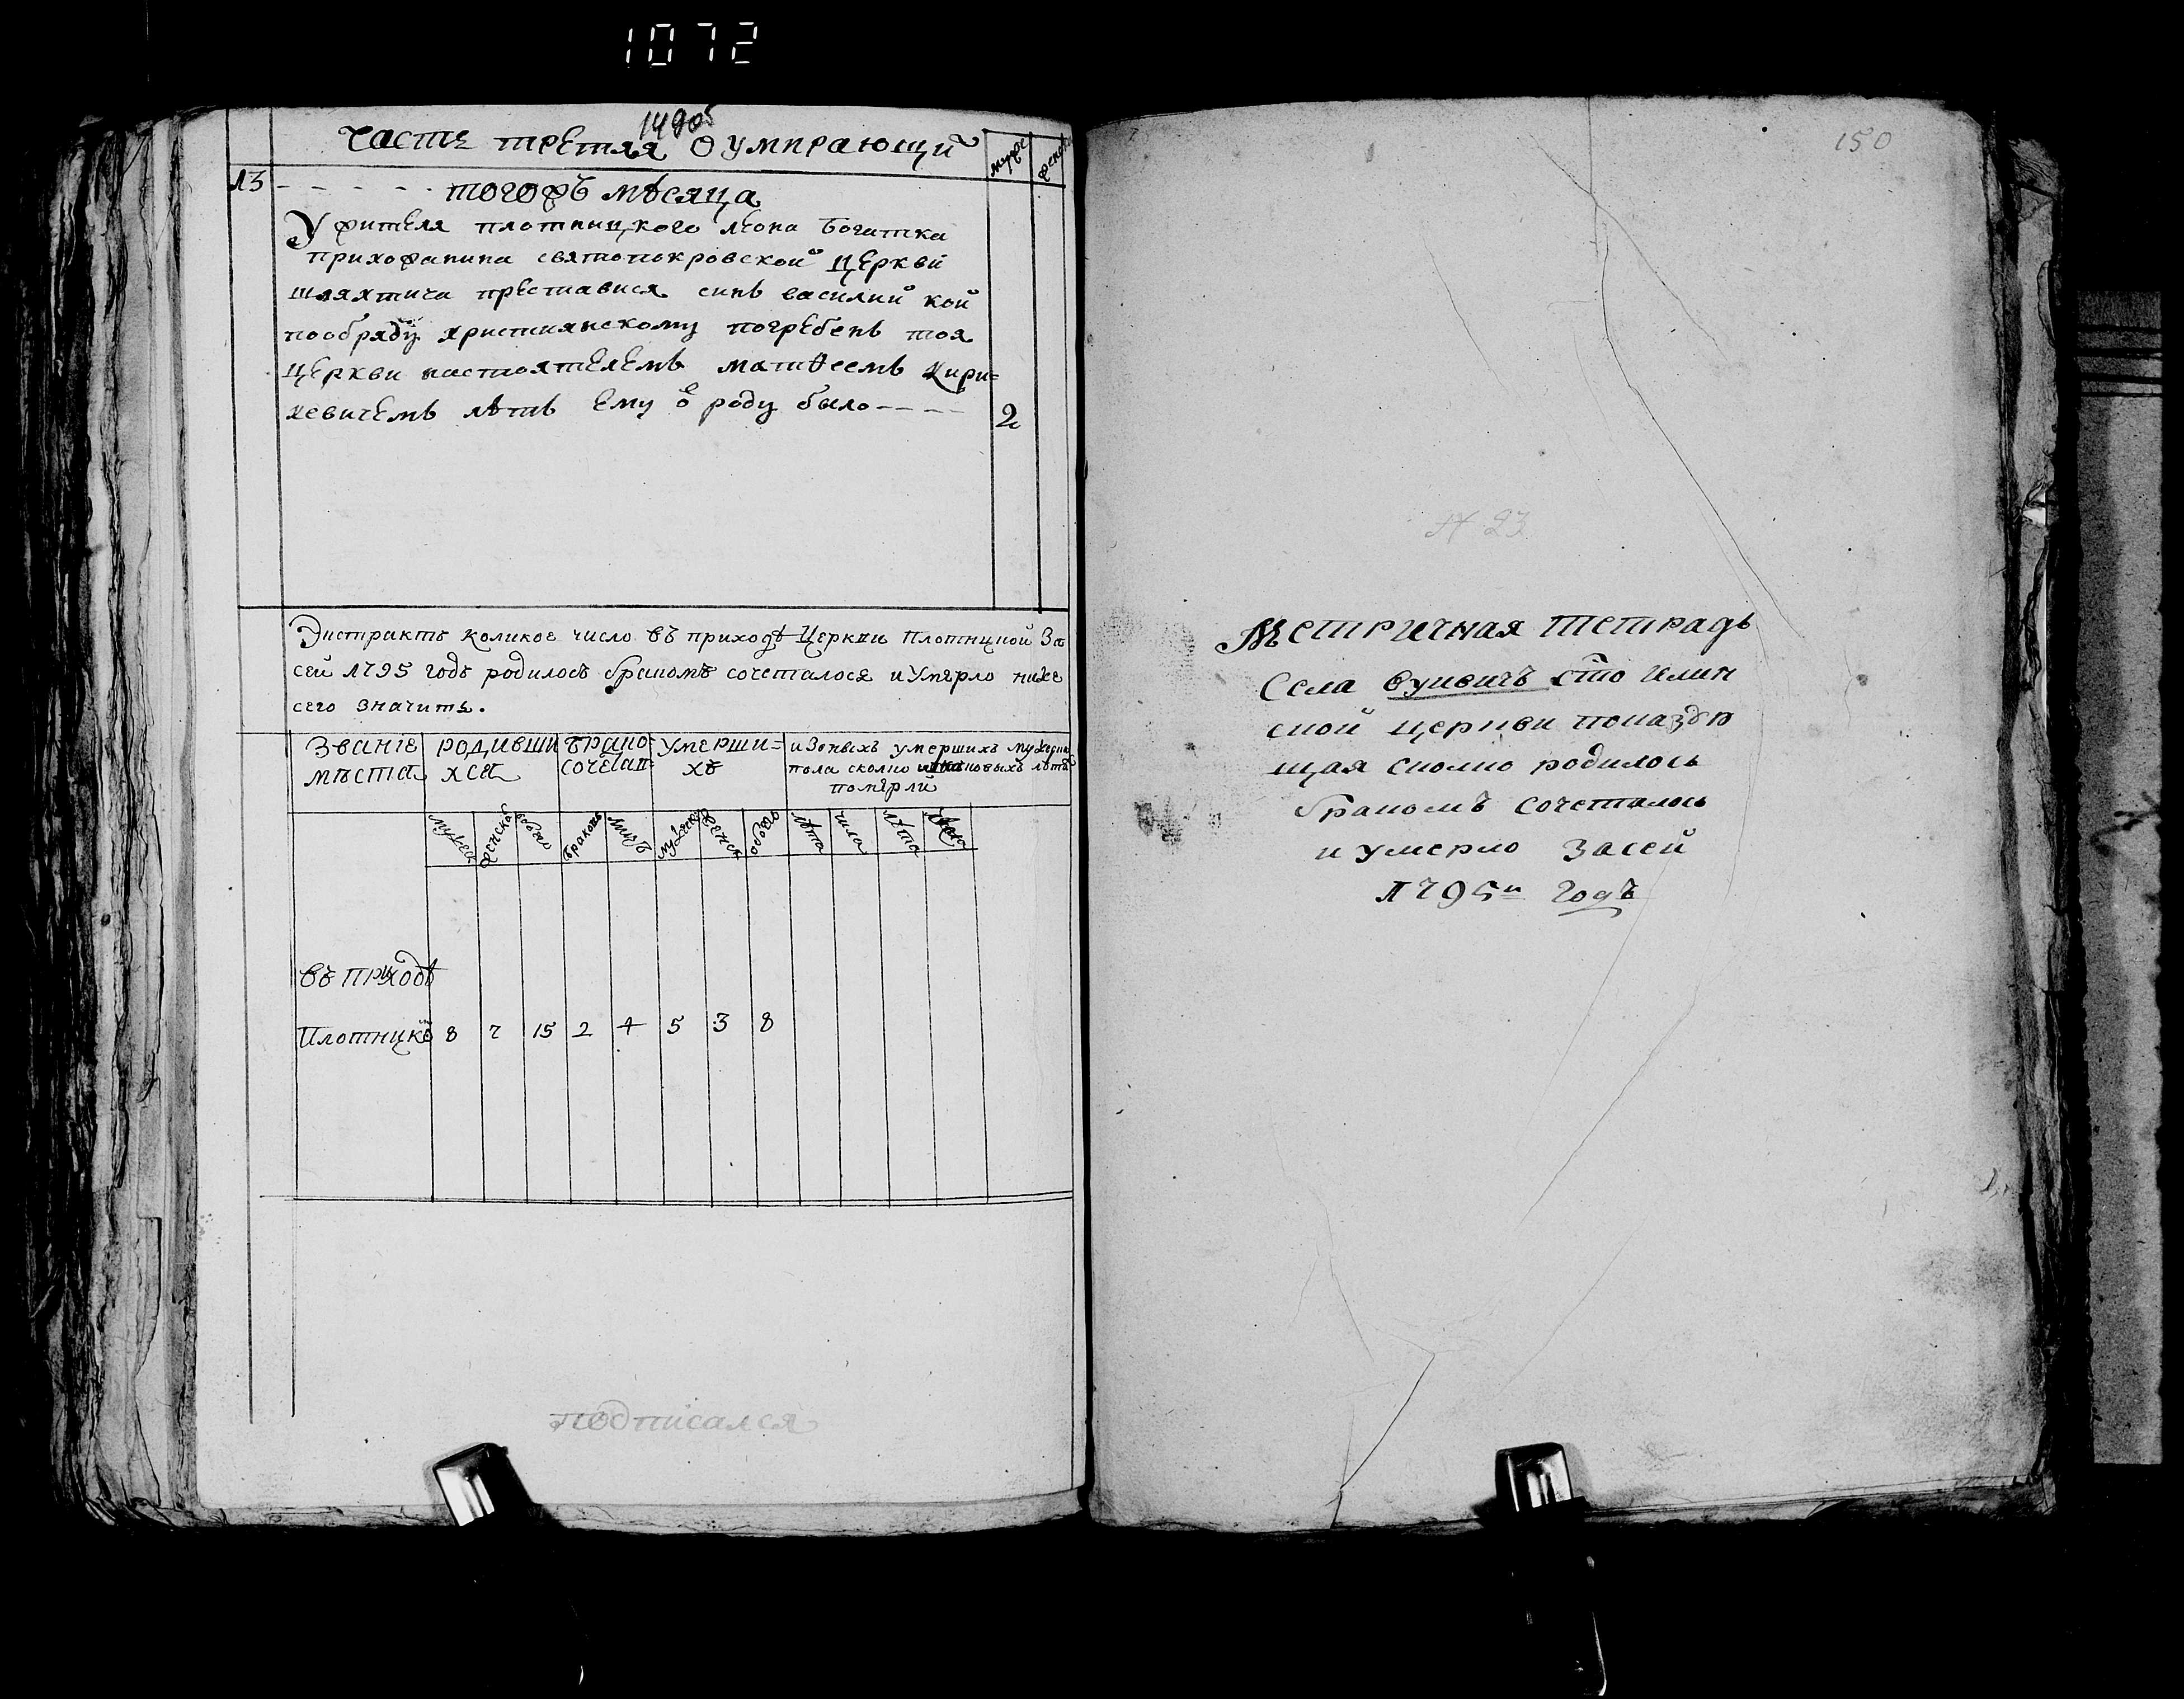 1072
Часть третля О умирающи
13 - - - - - тогожъ мѣсяца
У жителя плотницкого леона Богатка
прихожанина святопокровской церкви
шляхтича преставися синъ василий кой
пообряду християнскому погребенъ тоя
церкви настоятелемъ матѳеемъ Кири=
кевичемъ лѣтъ ему ѿ роду было - - - - 2
Экстрактъ коликое число въ приходѣ Церкви Плотницкой За
сей 1795 годъ родилось бракомъ сочеталося и Умерло ниже
сего значитъ.
Званіе родивши брако= Умерши= изоныхъ умершихъ мужеска
мѣста хся сочетан= хъ пола сколко каковыхъ лѣтъ
померли
мужеска женска обоего браковъ лицъ мужска женска обоего лѣта числа лѣта числа
въ приходѣ
Плотницкомъ 8 7 15 2 4 5 3 8
подписался
150
N 23
Метричная тетрадь
Села Вуивичъ сто илин
ской церкви показую
щая сколко родилось
бракомъ сочеталось
и умерло Засей
1795й Годъ